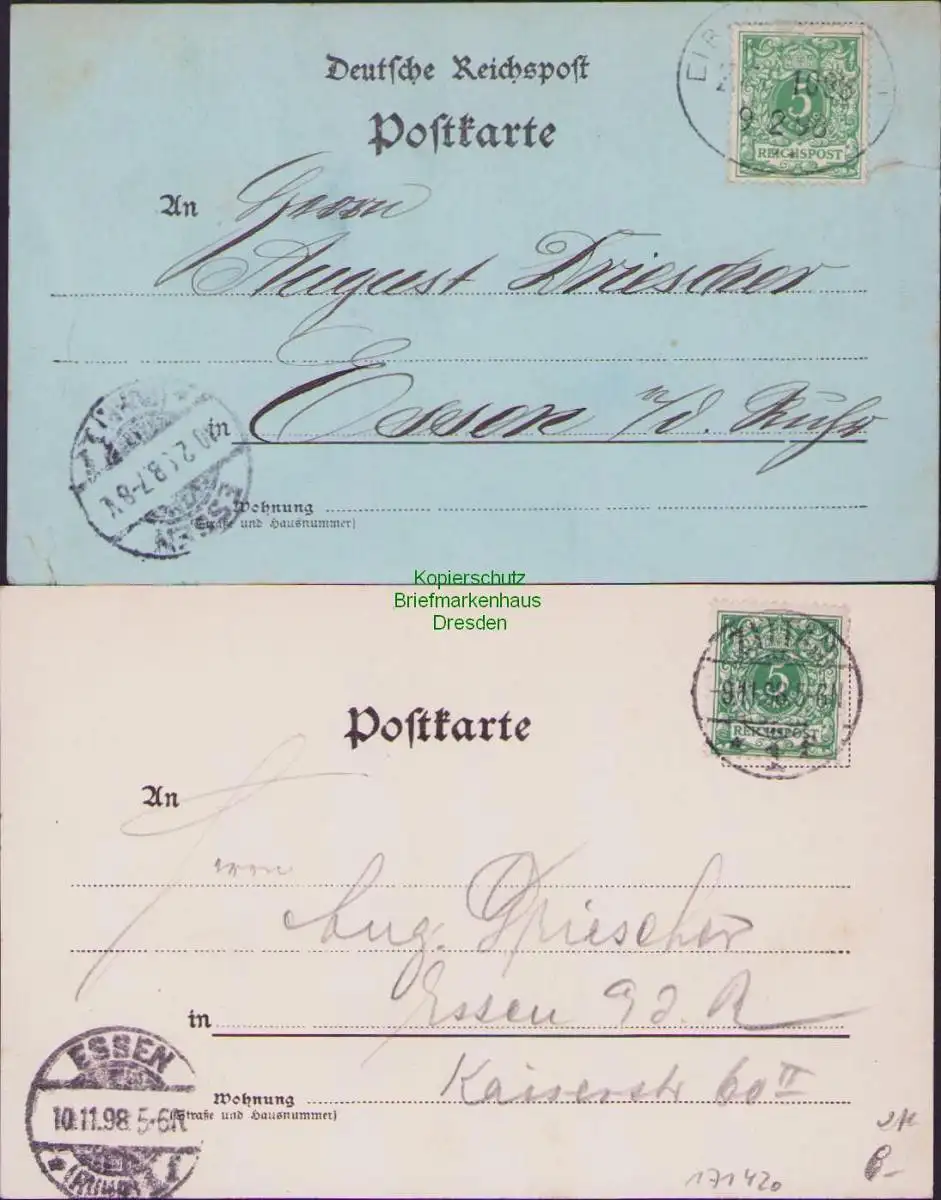 Deutsche Reichspost
Postkarte
9 2 98
5
REICHSPOST
An Herrn
August Driescher
in Essen a/d. Ruhr
ESSEN
7-8V.
Wohnung
(Straße und Hausnummer)
Kopierschutz
Briefmarkenhaus
Dresden
5
REICHSPOST
9.11.98.5-6N
1
Postkarte
An Herrn
Aug. Driescher
in Essen a. d. R
Kaiserstr 60 II
Wohnung
(Straße und Hausnummer)
ESSEN
10.11.98.5-6N
(RUHR) 1
171420